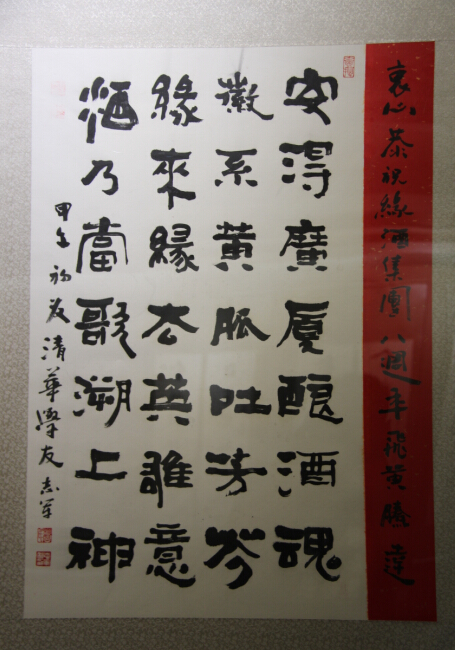 衷心恭祝緣酒集團八週年飛黃騰達
安得廣厦釀酒魂
徽系黃脈吐芳芬
緣來緣去英雄意
酒乃當歌溯上神
甲午初清華學友志军